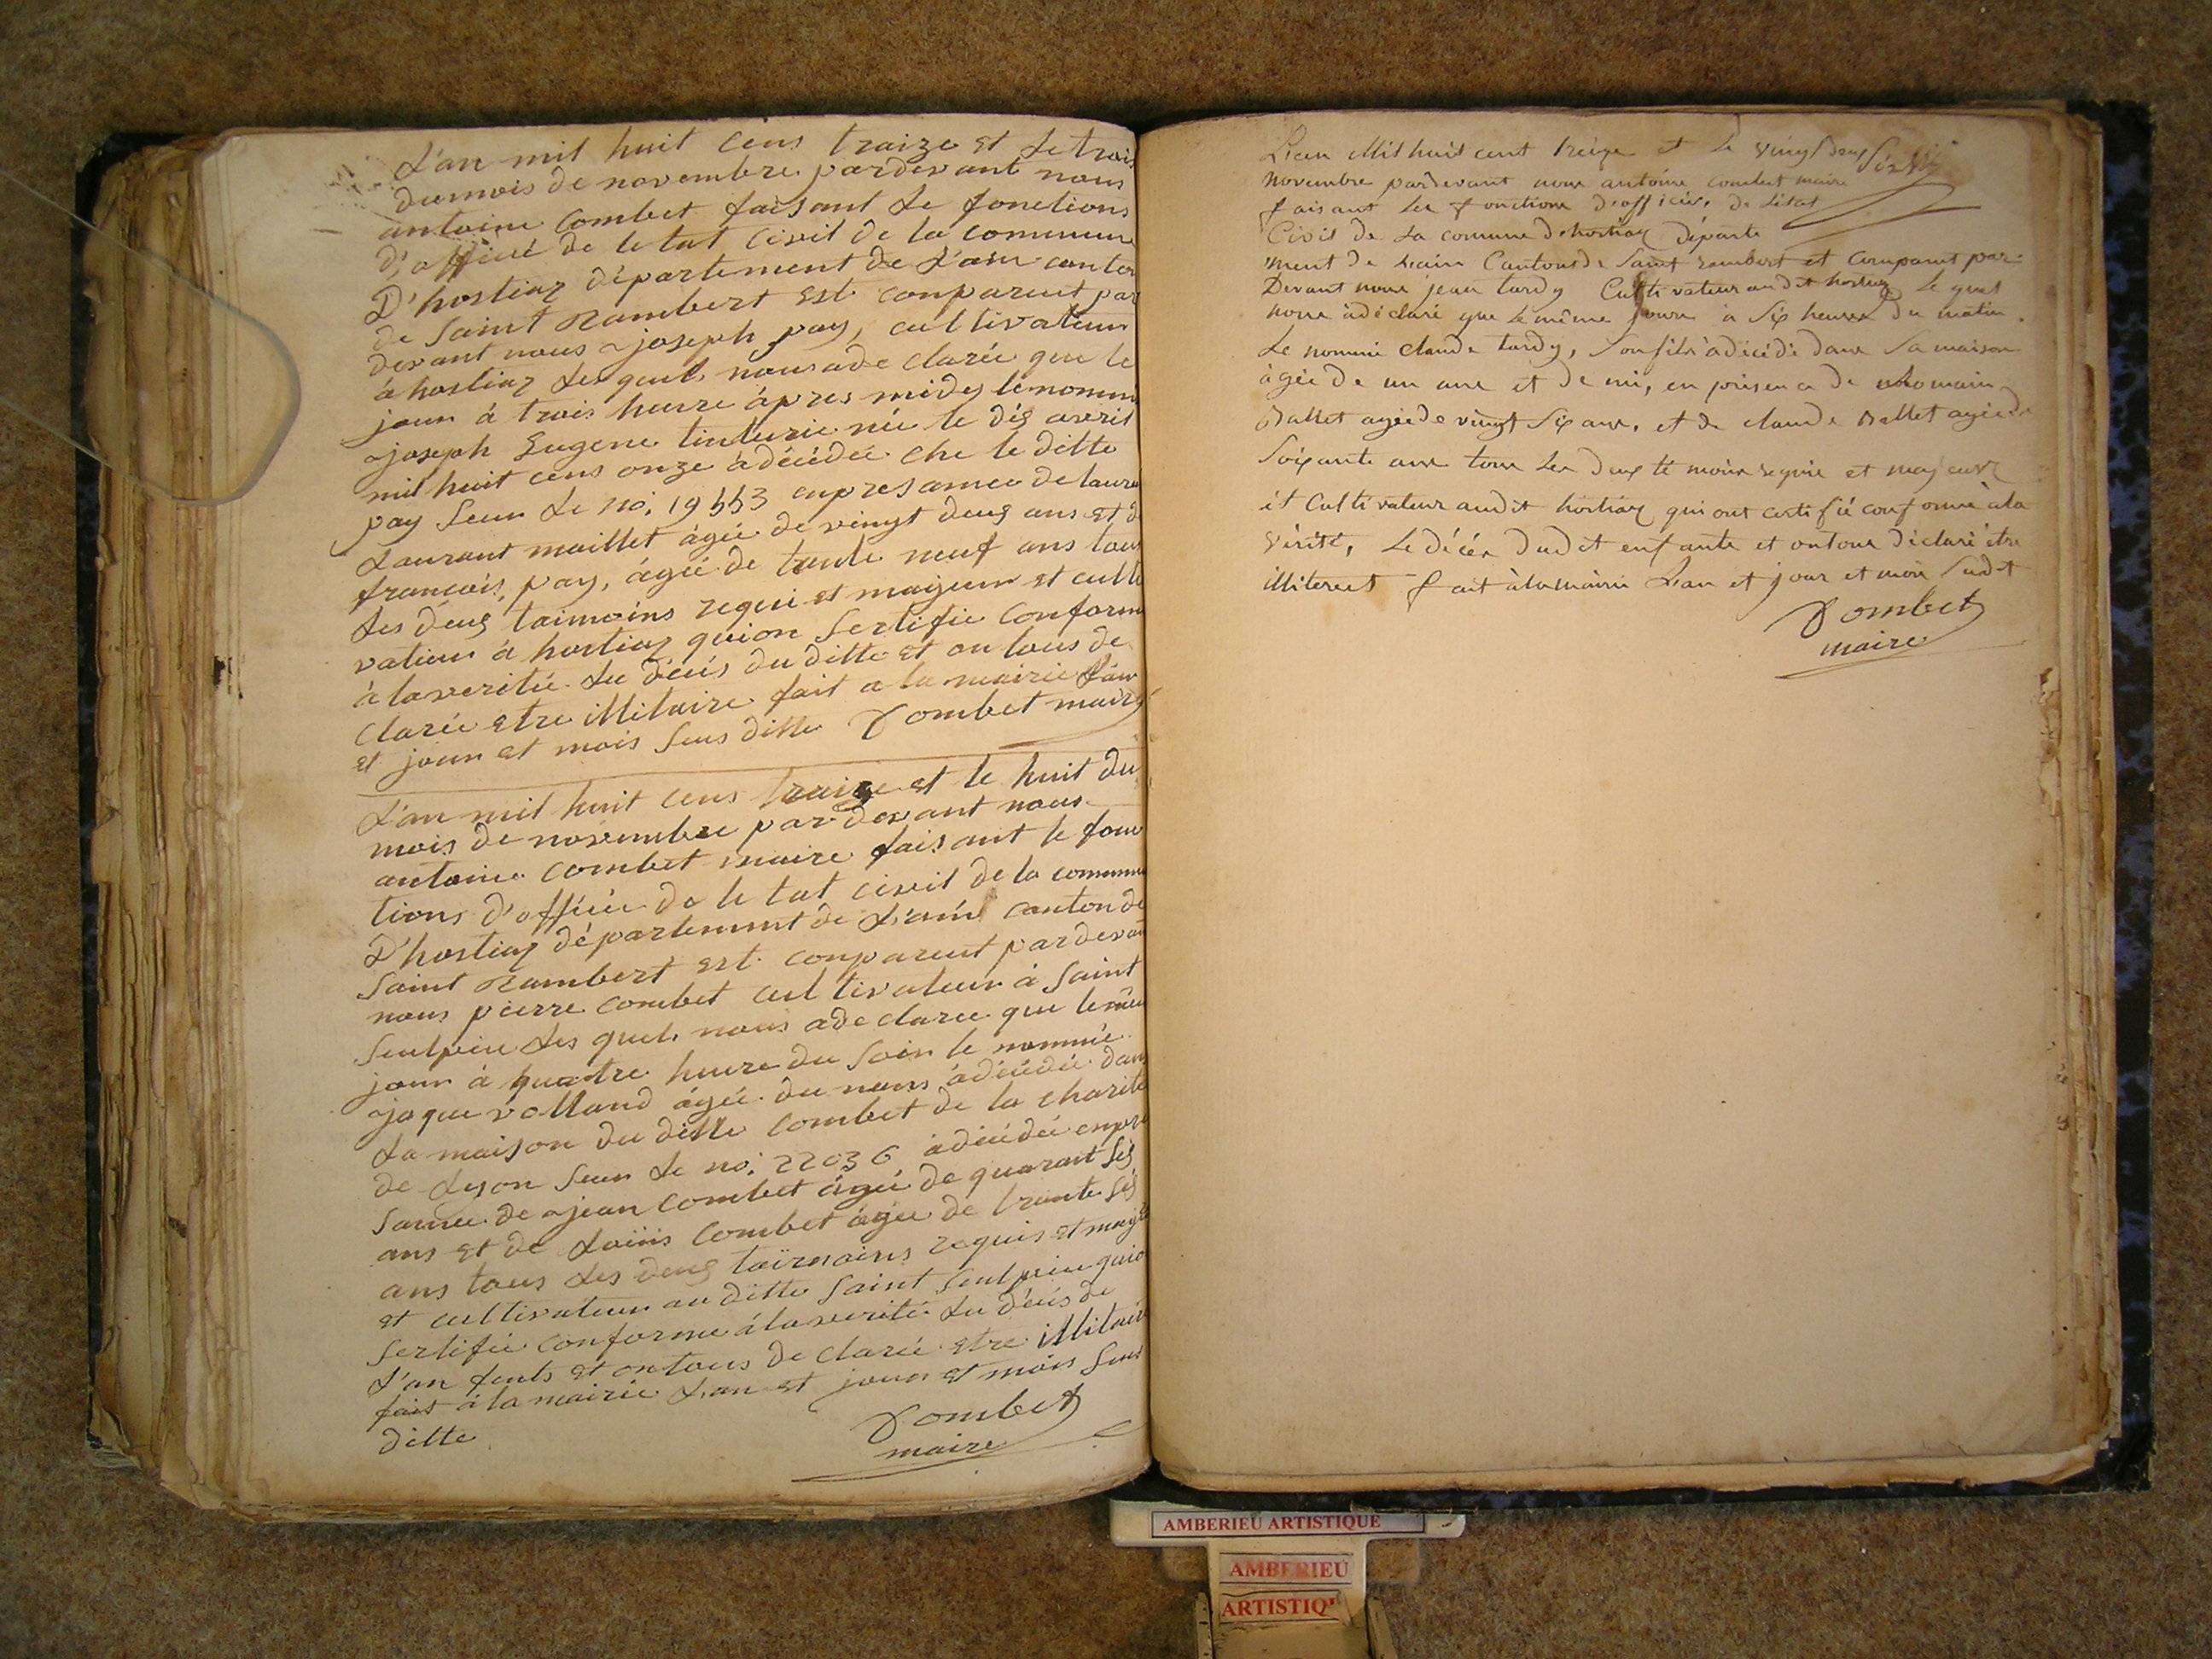 L'an mil huit cens traize et le trois
du mois de novembre pardevant nous
antoine Combet faisant le fonctions
d'officié de le tat civil de la commune
D'hostiaz département de L'ain canton
de Saint Rambert est conpareut par
devant nous joseph pay, cultivateur
à hostiaz les quel nous a de clarée que le
jour à trois heure âpres midy le nommé
joseph Eugene tinturie née le dis avril
mil huit cens onze à décédée che le ditte
pay Seur Le no. 19553 en presamce de laure
Laurant maillet âgée de vingt deus ans et de
francois, pay, âgée de trante neuf ans tous
Les deus taimoins requi et majeur et culti
vateur à hostiaz qui on Sertifie Conforme
à la verité Le décés du ditte et on tous de
clarée etre illitaire fait a la mairie L'an
et jour et mois Seus ditte Combet maire
L'an mil huit cens traize et le huit du
mois de novembre par devant nous
antoine combet maire faisant le fonc
tions d'officié de le tat civil de la commune
D'hostiaz département de L'ain canton de
Saint Rambert est conpareut pardevan
nous pierre combet cultivateur à Saint
Seulpice Les quel nous a de claree que le mêm
jour à quatre heure du Soir le nommée
jaque volland âgée du nans à décédée dans
La maison du ditte Combet de la charité
de Lyon Seur Le no. 22036 à décédée enpre
Samce de jean Combet âgée de quarant Sis
ans et de Loüis Combet âgée de trante Sis
ans tous Les deus taimoins requis et maje
et cultivateur au ditte Saint Seulpice qui o
Sertifiée conforme à la verité Le décés de
L'an fents et on tous de clarée etre illitair
fait à la mairie L'an et jour et mois Seus
ditte
Combet
maire
L'an Mil huit cent treize et le vingt deux
novembre pardevant nous antoine combet maire
faisant les fonctions d'officier de l'état
Civil de la comune d'hostiaz départe
ment de L'ain Canton de Saint rambert et comparut par
Devant nous jean tardy Cultivateur audit hostiaz Le quel
nous à déclaré que le même jour à Six heures du matin
Le nommé claude tardy, Son fils à décédé dans Sa maison
âgée de un ans et de mi, en présence de Romain
Ballet agée de vingt Six ans, et de claude Ballet agée de
Soixante ans tous Les deux témoins requis et majeurs
et Cultivateur audit hostiaz qui ont certifié conforme à la
vérité, Le décés dudit enfante et ont ous déclaré être
illiterect fait à la mairie L'an et jour et mois Susdit
Combet
maire
AMBERIEU ARTISTIQUE
AMBERIEU
ARTISTIQ